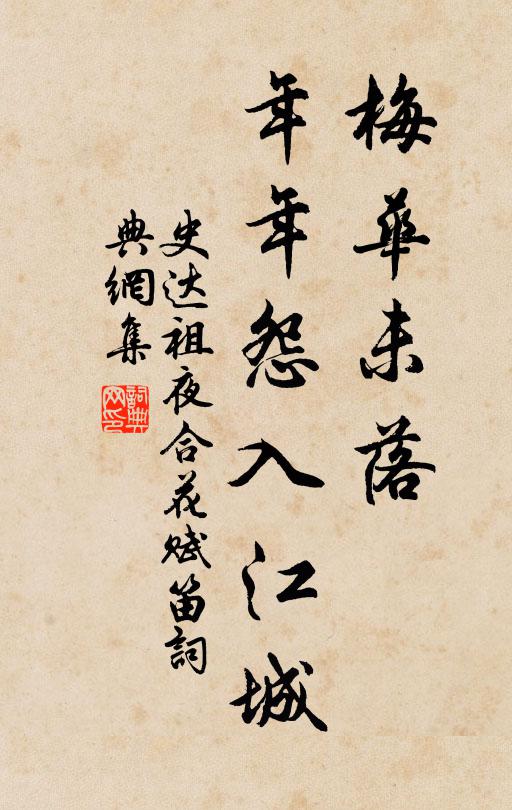 梅華未落
年年怨入江城
史达祖夜合花赋笛詞
典網集
詞典网印